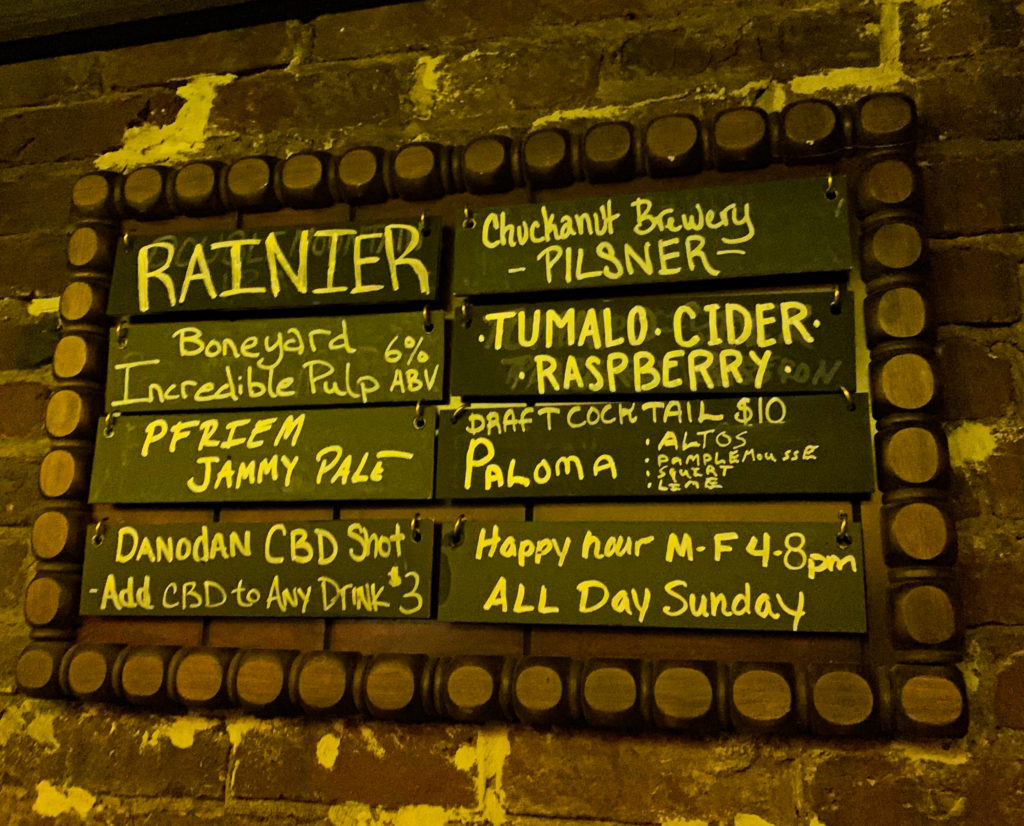 RAINIER
Boneyard
Incredible Pulp 6% ABV
PFRIEM
JAMMY PALE
DANODAN CBD Shot
-Add CBD to Any Drink $3
Chuckanut Brewery
- PILSNER -
·TUMALO· CIDER·
·RASPBERRY·
DRAFT COCKTAIL $10
PALOMA
· ALTOS
· PAMPLEMOUSSE
· SQUIRT
· LIME
Happy hour M-F 4-8pm
ALL Day Sunday